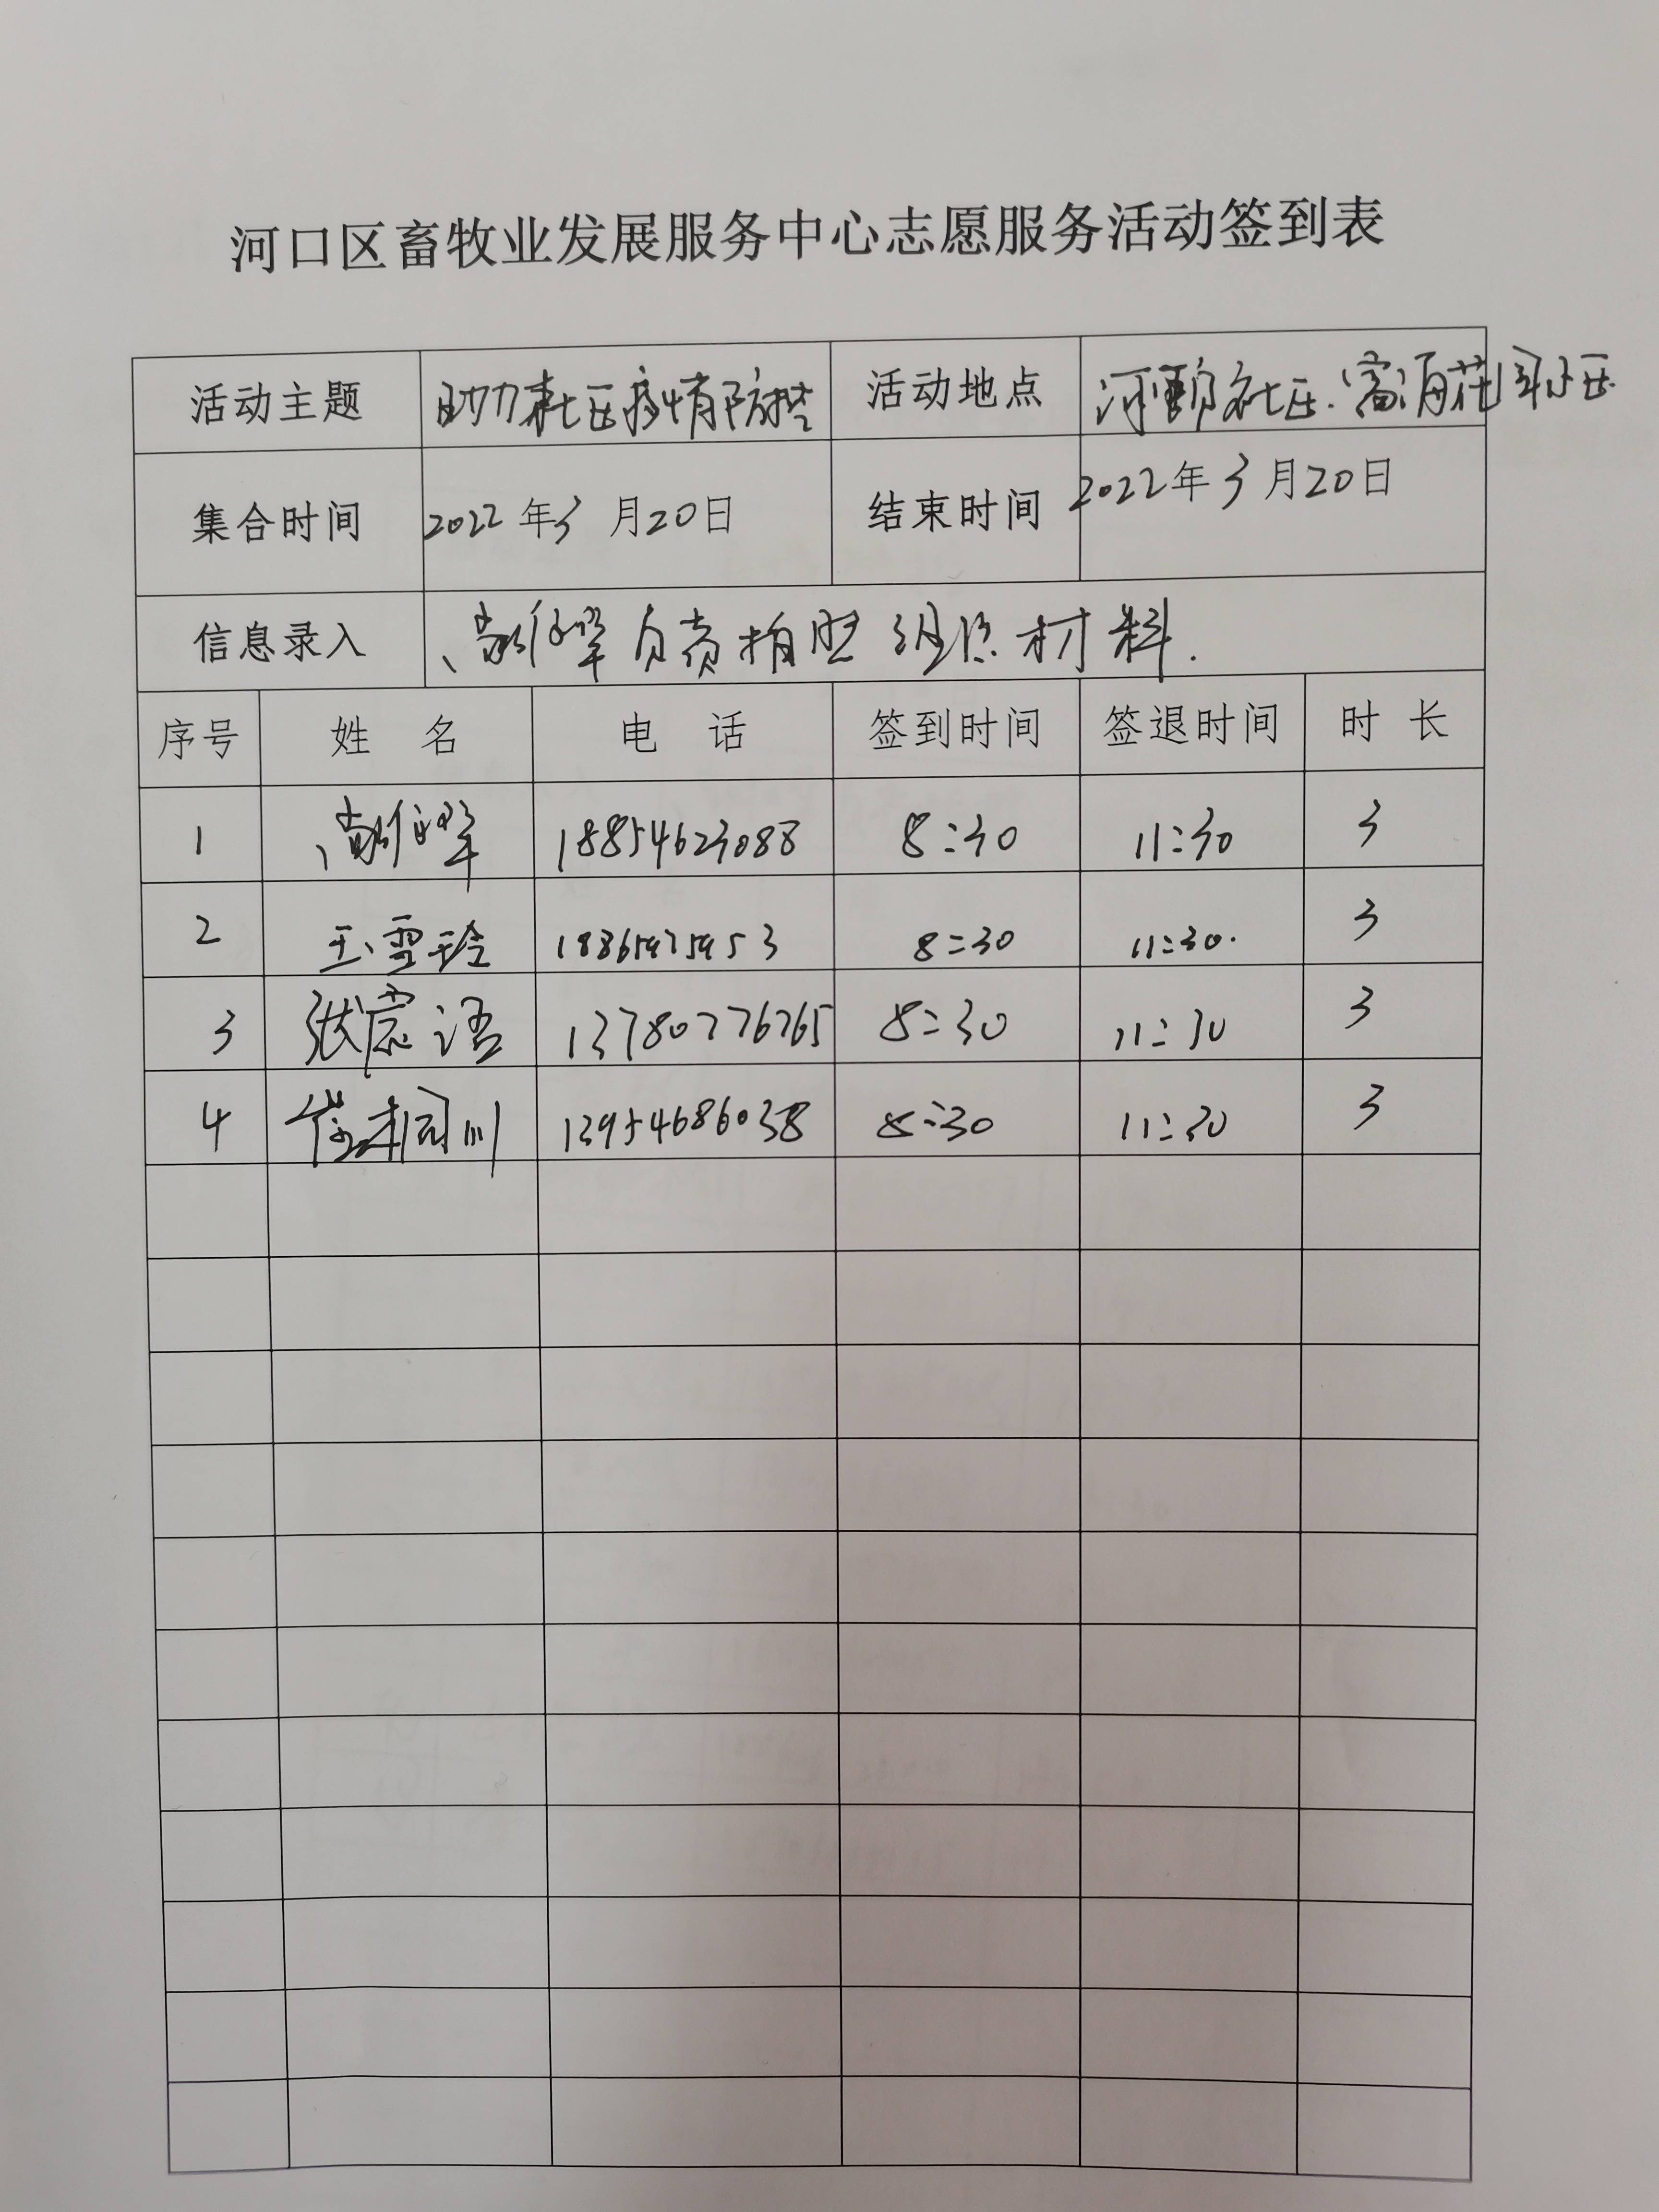 河口区畜牧业发展服务中心志愿服务活动签到表
活动主题 助力社区疫情防控 活动地点 社区.富海花园小区
集合时间 2022年3月20日 结束时间 2022年3月20日
信息录入 负责拍照 组织材料.
序号 姓名 电话 签到时间 签退时间 时长
1 18854623088 8:30 11:30 3
2 王雪玲 18865975953 8:30 11:30. 3
3 张震语 13780776765 8:30 11:30 3
4 13954686038 8:30 11:30 3